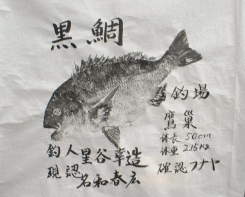 黒鯛
釣場
鷹巣
体長 50cm
体重 2.15kg
確認 フナド
釣人 星谷幸造
現認 名和春広